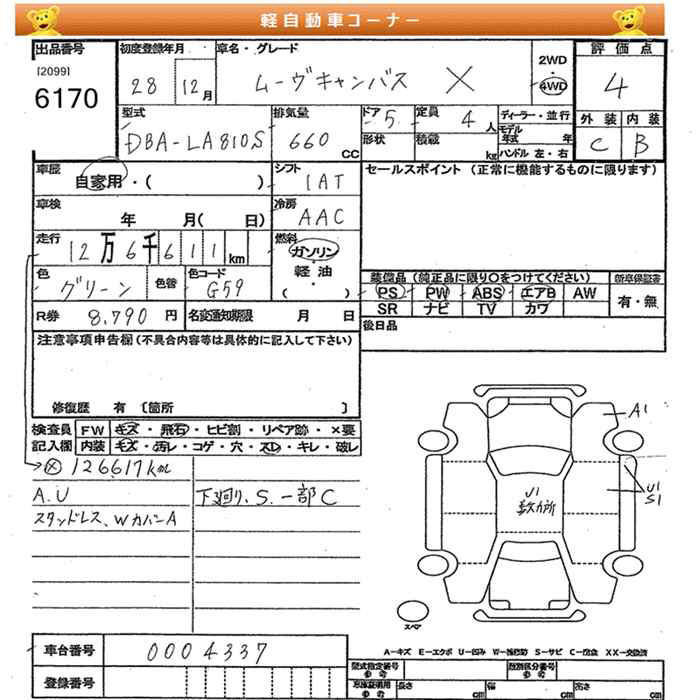 軽自動車コーナー
出品番号
[2099]
6170
初度登録年月
28 12月
車名・グレード
ムーヴキャンバス X
2WD
・
4WD
評価点
4
型式
DBA-LA810S
排気量
660 CC
ドア 5
形状
定員 4 人
積載 kg
ディーラー・並行
モデル年式 年
ハンドル 左・右
外装 内装
C B
車歴
自家用・( )
シフト
1AT
セールスポイント (正常に機能するものに限ります)
車検
年 月(日)
冷房
AAC
走行
12万6千611km
燃料
ガソリン
軽油
・( )
色
グリーン
色替
色コード
G59
装備品 (純正品に限り○をつけてください)
新車保証書
PS PW ABS エアB AW
SR ナビ TV カワ
有・無
R券 8,790 円
名変通知期限 月 日
後日品
注意事項申告欄 (不具合内容等は具体的に記入して下さい)
修復歴 有 [箇所 ]
検査員記入欄
FW キズ・飛石・ヒビ割・リペア跡・×要
内装 キズ・汚レ・コゲ・穴・スレ・キレ・破レ
126617km
A.U
スタッドレス、WカバーA
下廻り、S.一部C
A1
U1
S1
U1
数カ所
スペア
A-キズ E-エクボ U-凹み W-補修跡 S-サビ C-腐食 XX-交換済
車台番号 0004337
登録番号
型式指定番号
参考
類別区分番号
参考
車庫証明用
参考
長さ cm
幅 cm
高さ cm